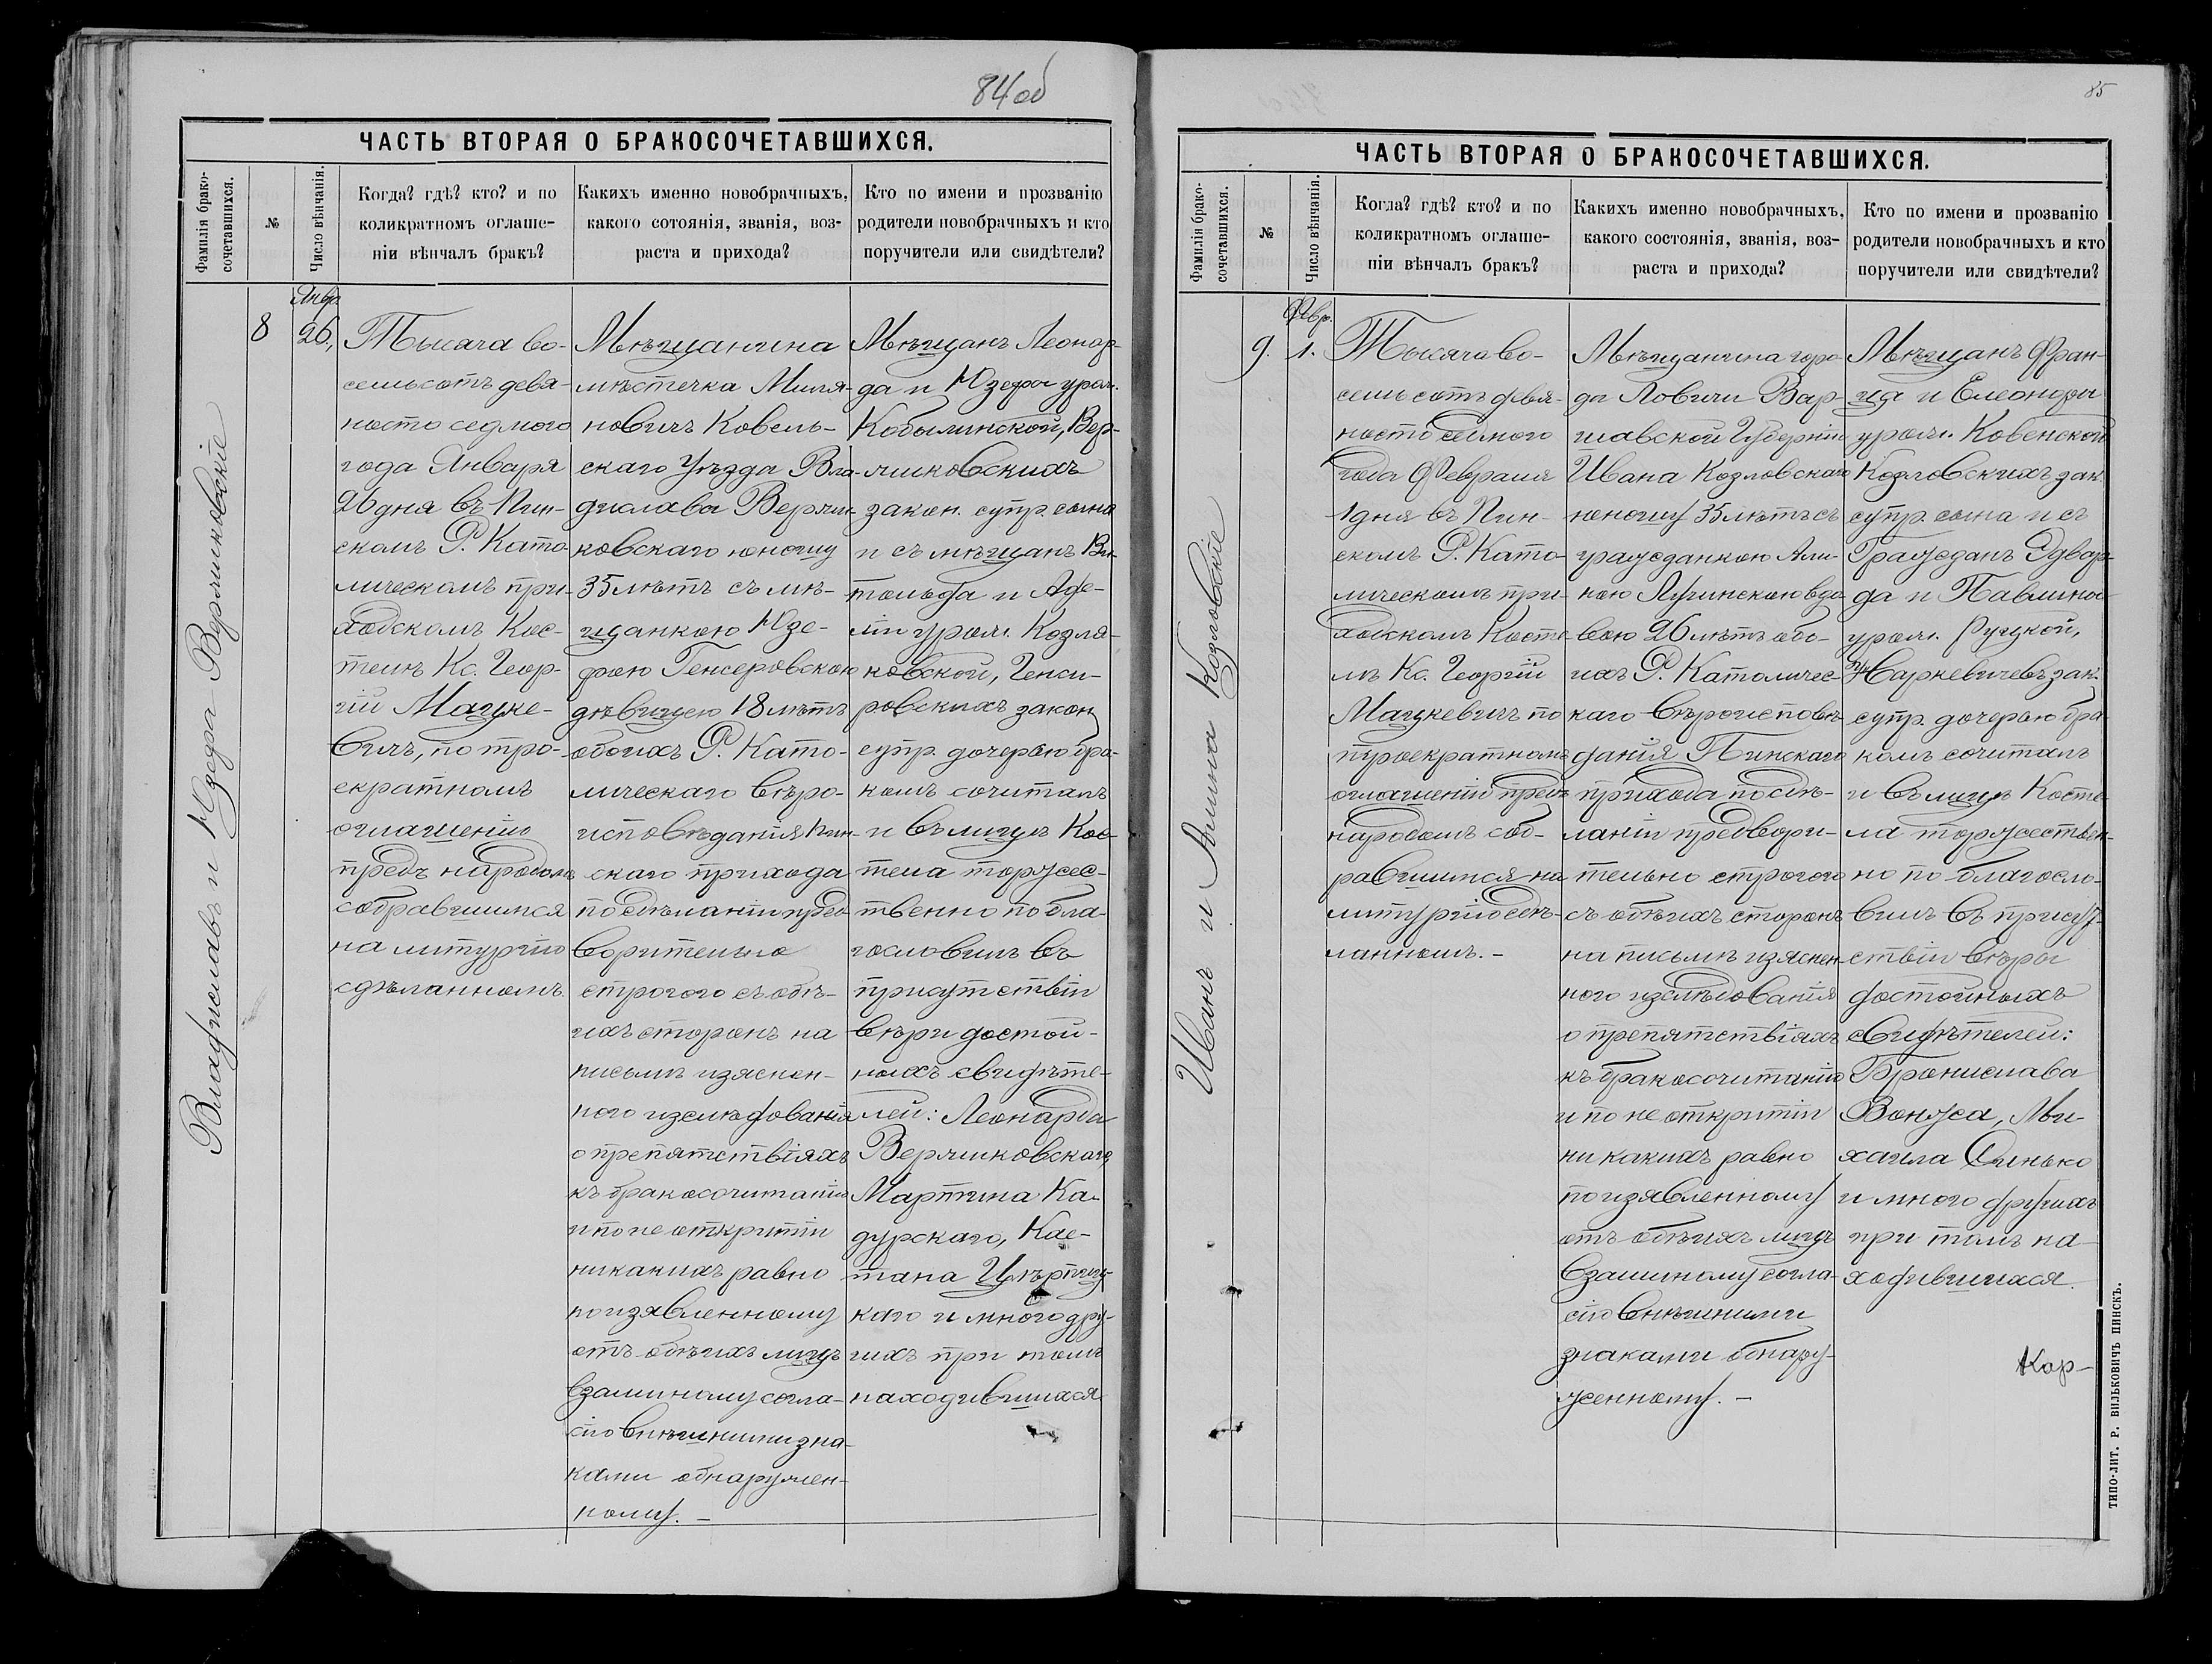 84 об
ЧАСТЬ ВТОРАЯ О БРАКОСОЧЕТАВШИХСЯ.
Фамилія брако-
сочетавшихся.
№
Число вѣнчанія.
Когда? гдѣ? кто? и по
коликратномъ оглаше-
ніи вѣнчалъ бракъ?
Какихъ именно новобрачныхъ,
какого сотоянія, званія, воз-
раста и прихода?
Кто по имени и прозванію
родители новобрачныхъ и кто
поручители или свидѣтели?
Владиславъ и Юзефа Вержиковскіе
8
Янвр.
26,
Тысяча во-
семьсотъ девя-
носто седмого
года Января
26 дня въ Пин-
скомъ Р. Като-
лическомъ при-
ходскомъ Кос-
телѣ Кс. Геор-
гій Мацке-
вичъ, по тро-
екратномъ
оглашеніи
предъ народомъ
собравшимся
на литургію
сдѣланномъ.
Мѣщанина
мѣстечка Миля-
новичъ Ковель-
скаго Уѣзда Вла-
дислава
ковскаго юношу
35 лѣтъ съ мѣ-
щанкою Юзе-
фою Генсеровскою
дѣвицею 18 лѣтъ
обоихъ Р. Като-
лическаго вѣро-
исповѣданія Пин-
скаго прихода
по сдѣланіи пред-
ворительно
строгого съ обѣ-
ихъ сторонъ на
письмѣ изяснен-
ного изслѣдованія
о препятствіяхъ
къ бракосочитанію
и по не открытіи
никакихъ равно
по изявленному
отъ обѣихъ лицъ
взаимному согла-
сію внѣшними зна-
ками обнаружен-
ному. -
Мѣщанъ Леонар-
да и Юзефы урож.
Кобылинской, Вер-
жиковскихъ
закон. супр. сына
и съ мѣщанъ Ви-
тольда и Аде-
ли урож. Козля-
ковской, Генси-
ровскихъ закон
супр. дочерью бра-
комъ сочиталъ
и въ лицѣ Кос-
тела торжес-
твенно по бла-
гословилъ въ
присутствіи
вѣри достой-
ныхъ свидѣте-
лей: Леонарда
Вержиковскаго,
Мартина Ка-
дурскаго, Кае-
тана
каго и много дру-
гихъ при томъ
находившихся
85
ЧАСТЬ ВТОРАЯ О БРАКОСОЧЕТАВШИХСЯ.
Фамилія брако-
сочетавшихся.
№
Число вѣнчанія.
Когда? гдѣ? кто? и по
коликратномъ оглаше-
ніи вѣнчалъ бракъ?
Какихъ именно новобрачныхъ,
какого состоянія, званія, воз-
раста и прихода?
Кто по имени и прозванію
родители новобрачныхъ и кто
поручители или свидѣтели?
Иванъ и Алина Козловскіе
9.
Февр.
1.
Тысяча во-
семьсотъ девя-
носто седмого
года Февраля
1 дня въ Пин-
скомъ Р. Като-
лическомъ при-
ходскомъ Косте-
лѣ Кс. Георгій
Мацкевичъ по
троекратномъ
оглашеніи предъ
народомъ соб-
равшимся на
литургію сдѣ-
ланномъ. -
Мѣщанина горо-
да Ловичи Вар-
шавской Губерніи
Ивана Козловскаго
юношу 35 лѣтъ съ
гражданкою Али-
ною Лучинскою вдо-
вою 26 лѣтъ обо-
ихъ Р. Католичес-
каго вѣроисповѣ-
данія Пинскаго
прихода по сдѣ-
ланіи предвори-
тельно строгого
съ обѣихъ сторонъ
на письмѣ изяснен-
ного изслѣдованія
о препятствіяхъ
къ бракосочитанію
и по не открытіи
ни какихъ равно
по изявленному
отъ обѣихъ лицъ
взаимному согла-
сію внѣшними
знаками обнару-
женному. -
Мѣщанъ Фран-
ца и Елеоноры
урож. Ковенской
Козловскихъ зак.
супр. сына и съ
Гражданъ Эдвар-
да и Павлины
урож. Руцкой,
Наркевичевъ зак.
супр. дочерью бра-
комъ сочиталъ
и въ лицѣ Косте-
ла торжествен-
но по благосло-
вилъ въ присут-
ствіи вѣры
достойныхъ
свидѣтелей:
Бронислава
Вонжа, Ми-
хаила Синько
и много другихъ
при томъ на-
ходившихся.
Кар-
ТИПО-ЛИТ. Р. ВИЛЬКОВИЧЪ ПИНСКЪ.